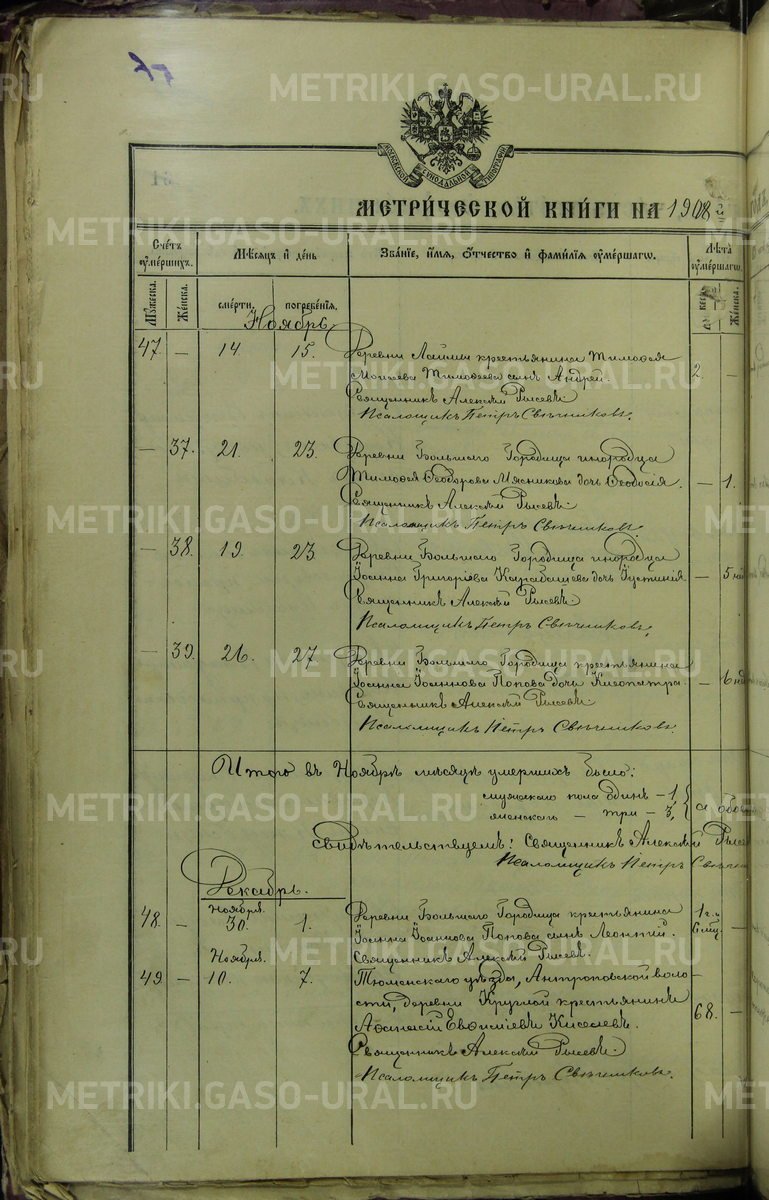 METRIKI.GASO-URAL.RU
МОСКОВСКОЙ СѴНОДАЛЬНОЙ ТИПОГРАФІИ
МЕТРИ́ЧЕСКОЙ КНИ́ГИ НА 1908й
Сче́тъ ᲂу҆ме́ршихъ. Мѣ́сяцъ и҆ де́нь Зва́нїе, и҆́мя, ѻ҆́тчество и҆ фами́лїя ᲂу҆ме́ршагѡ. Лѣ́та ᲂу҆ме́ршагѡ.
Мꙋ́жеска. Же́нска. сме́рти. погребе́нїя. Же́нска.
Ноябрь
47 — 14. 15. Деревни крестьянина Тимофея
Моисеева Тимофеева сынъ Андрей. 2. —
Священникъ Алексѣй Рысевъ.
Псаломщикъ Петръ Свѣчниковъ.
— 37. 21. 23. Деревни Большаго Городища инородца
Тимофея Ѳеодорова Мясникова дочь Ѳеодосія. — 1.
Священникъ Алексѣй Рысевъ.
Псаломщикъ Петръ Свѣчниковъ.
— 38. 19. 23. Деревни Большаго Городища инородца
Іоанна Григоріева Карабашева дочь Іустинія — 5 нед
Священникъ Алексѣй Рысевъ.
Псаломщикъ Петръ Свѣчниковъ.
— 39. 26. 27 Деревни Большаго Городища крестьянина
Іоанна Іоаннова Попова дочь Клеопатра. — 6 нд
Священникъ Алексѣй Рысевъ.
Псаломщикъ Петръ Свѣчниковъ.
Итого въ Ноябрѣ мѣсяцѣ умершихъ было:
мужескаго пола одинъ — 1,
женскаго — три — 3, а обо
свидѣтельствуемъ: Священникъ Алексѣй Рысе
Псаломщикъ Петръ Свѣчн
Декабрь.
48. — Ноября. 30. 1. Деревни Большаго Городища крестьянина 1 г.
Іоанна Іоаннова Попова сынъ Леонтій. 6 мц. —
Ноября. Священникъ Алексѣй Рысевъ.
49. — 10. 7. Тюменскаго уѣзда, Антроповской воло-
сти, деревни Круглой крестьянинъ
Аѳанасій Евѳиміевъ Киселевъ. 68. —
Священникъ Алексѣй Рысевъ.
Псаломщикъ Петръ Свѣчниковъ.